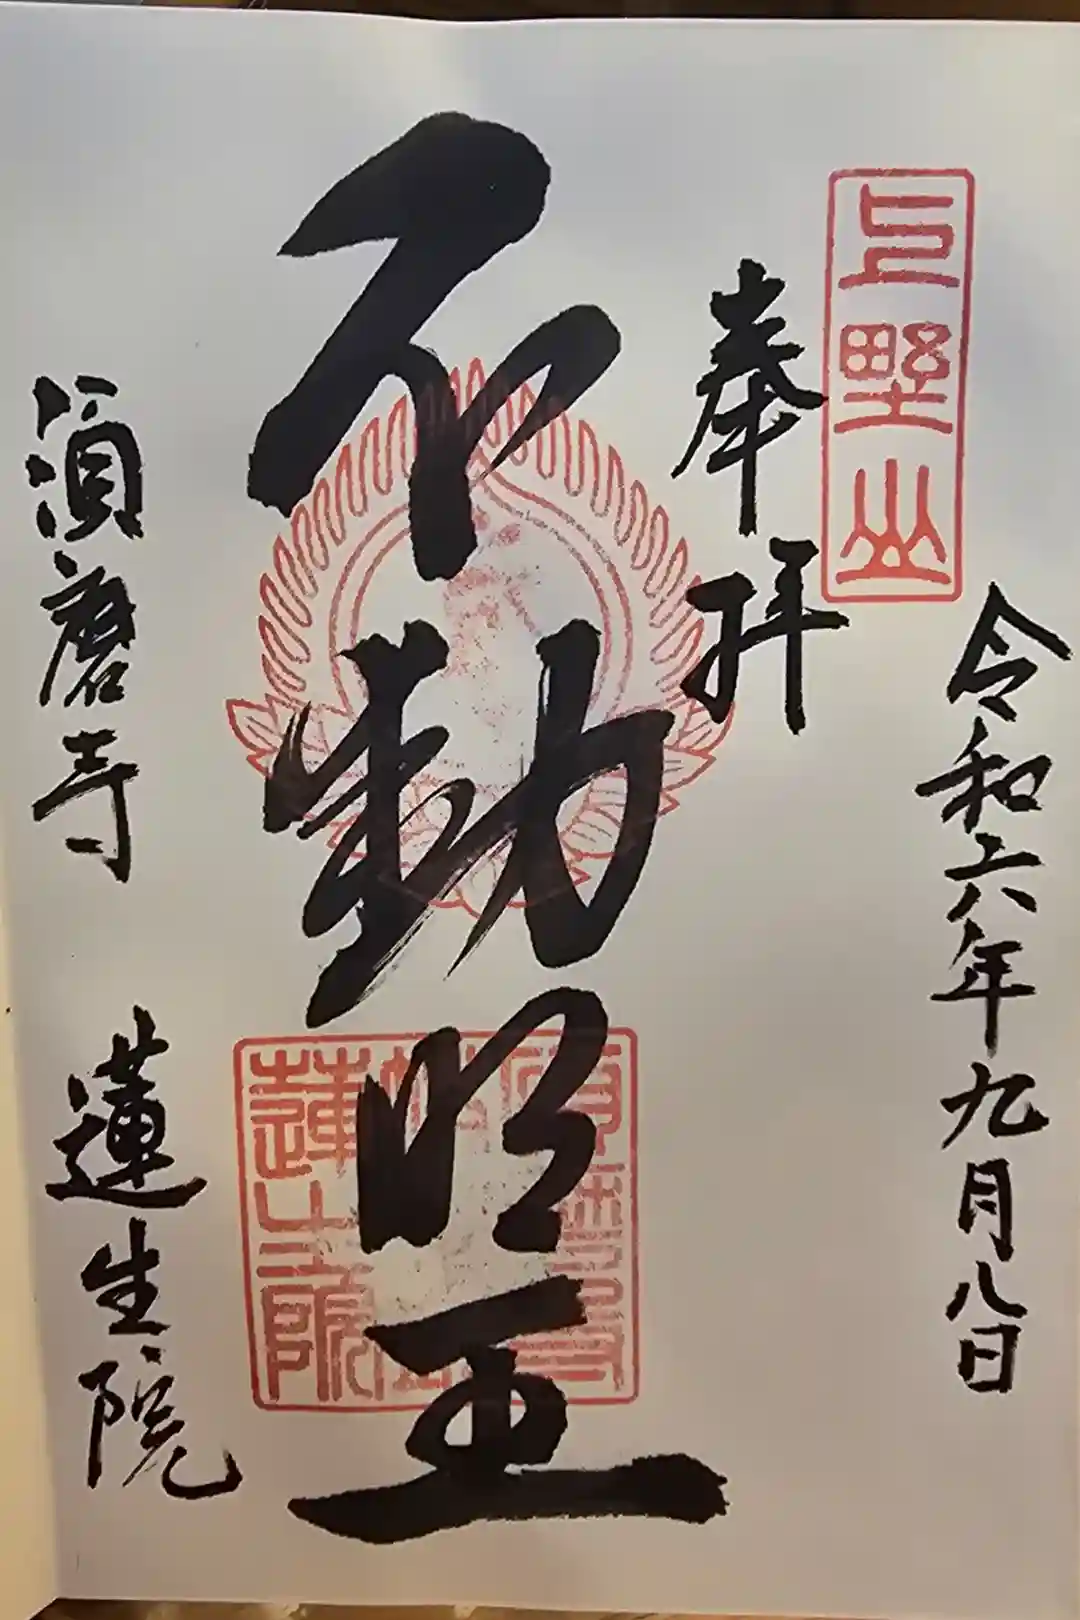 令和六年九月八日
上野山
奉拝
不動明王
蓮生院
須磨寺 蓮生院